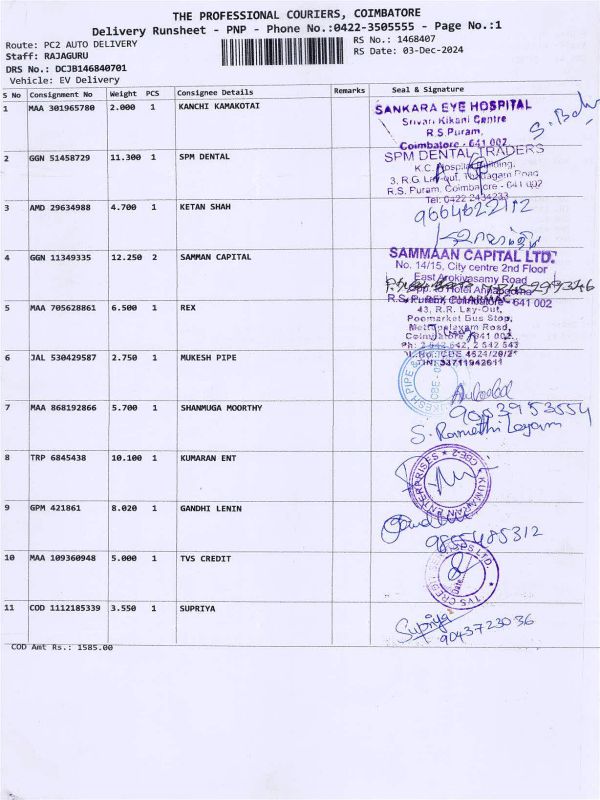 THE PROFESSIONAL COURIERS, COIMBATORE
Delivery Runsheet - PNP - Phone No.:0422-3505555 - Page No.:1
Route: PC2 AUTO DELIVERY
RS No.: 1468407
Staff: RAJAGURU
RS Date: 03-Dec-2024
DRS No.: DCJB146840701
Vehicle: EV Delivery
S No Consignment No Weight PCS Consignee Details Remarks Seal & Signature
1 MAA 301965780 2.000 1 KANCHI KAMAKOTAI
SANKARA EYE HOSPITAL
Srivari Kikani Centre
R.S.Puram,
Coimbatore - 641 002
2 GGN 51458729 11.300 1 SPM DENTAL
SPM DENTAL TRADERS
K.C. Hospital Building,
3, R.G. Lay-out, Thadagam Road
R.S. Puram, Coimbatore - 641 002
Tel: 0422 2434233
3 AMD 29634988 4.700 1 KETAN SHAH
4 GGN 11349335 12.250 2 SAMMAN CAPITAL
SAMMAAN CAPITAL LTD.
No. 14/15, City centre 2nd Floor
East Arokiyasamy Road
5 MAA 705628861 6.500 1 REX
43, R.R. Lay-Out,
Poomarket Bus Stop,
Mettupalayam Road,
6 JAL 530429587 2.750 1 MUKESH PIPE
7 MAA 868192866 5.700 1 SHANMUGA MOORTHY
8 TRP 6845438 10.100 1 KUMARAN ENT
KUMARAN ENTERPRISES
CBE-2
9 GPM 421861 8.020 1 GANDHI LENIN
9855485312
10 MAA 109360948 5.000 1 TVS CREDIT
11 COD 1112185339 3.550 1 SUPRIYA
Supriya
9043723036
COD Amt Rs.: 1585.00